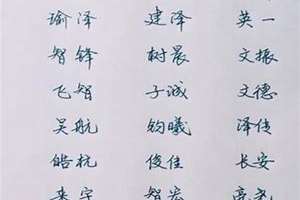 瑜泽 建泽 英一
智锋 树晨 文振
飞智 子诚 文德
吴航 钧曦 泽传
皓杭 俊佳 长安
智宏